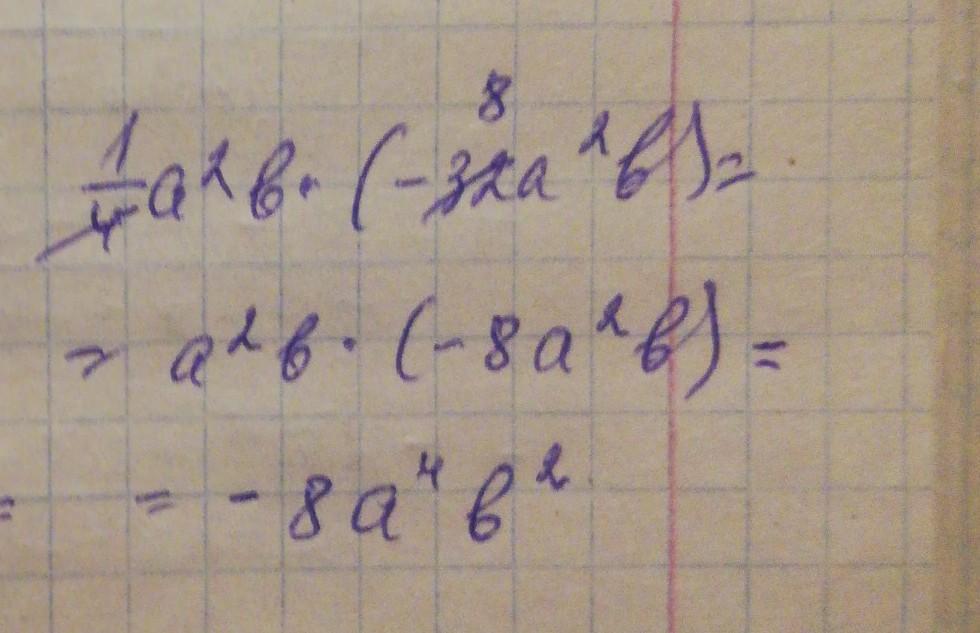 8
1/4 a²b · (-32a²b) =
= a²b · (-8a²b) =
= = -8a⁴b²